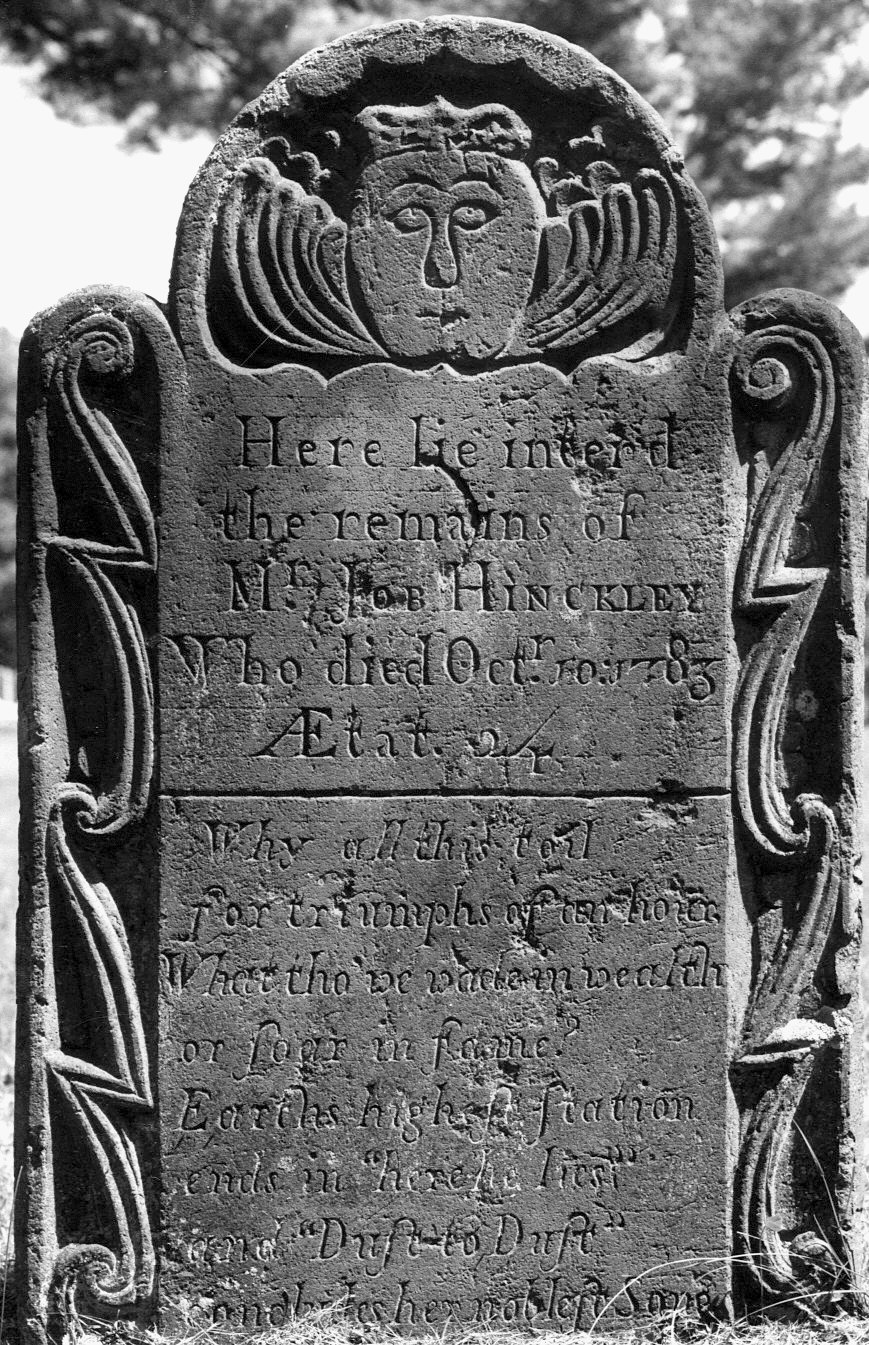 Here lie inter'd
the remains of
Mr. Job Hinckley
Who died Octr. 10: 1783
Ætat. 24
Why all this toil
for triumphs of an hour
What tho' we wade in wealth
or ſoar in fame?
Earths highest ſtation
ends in "here he lies":
and "Duſt to Duſt"
concludes her nobleſt Song